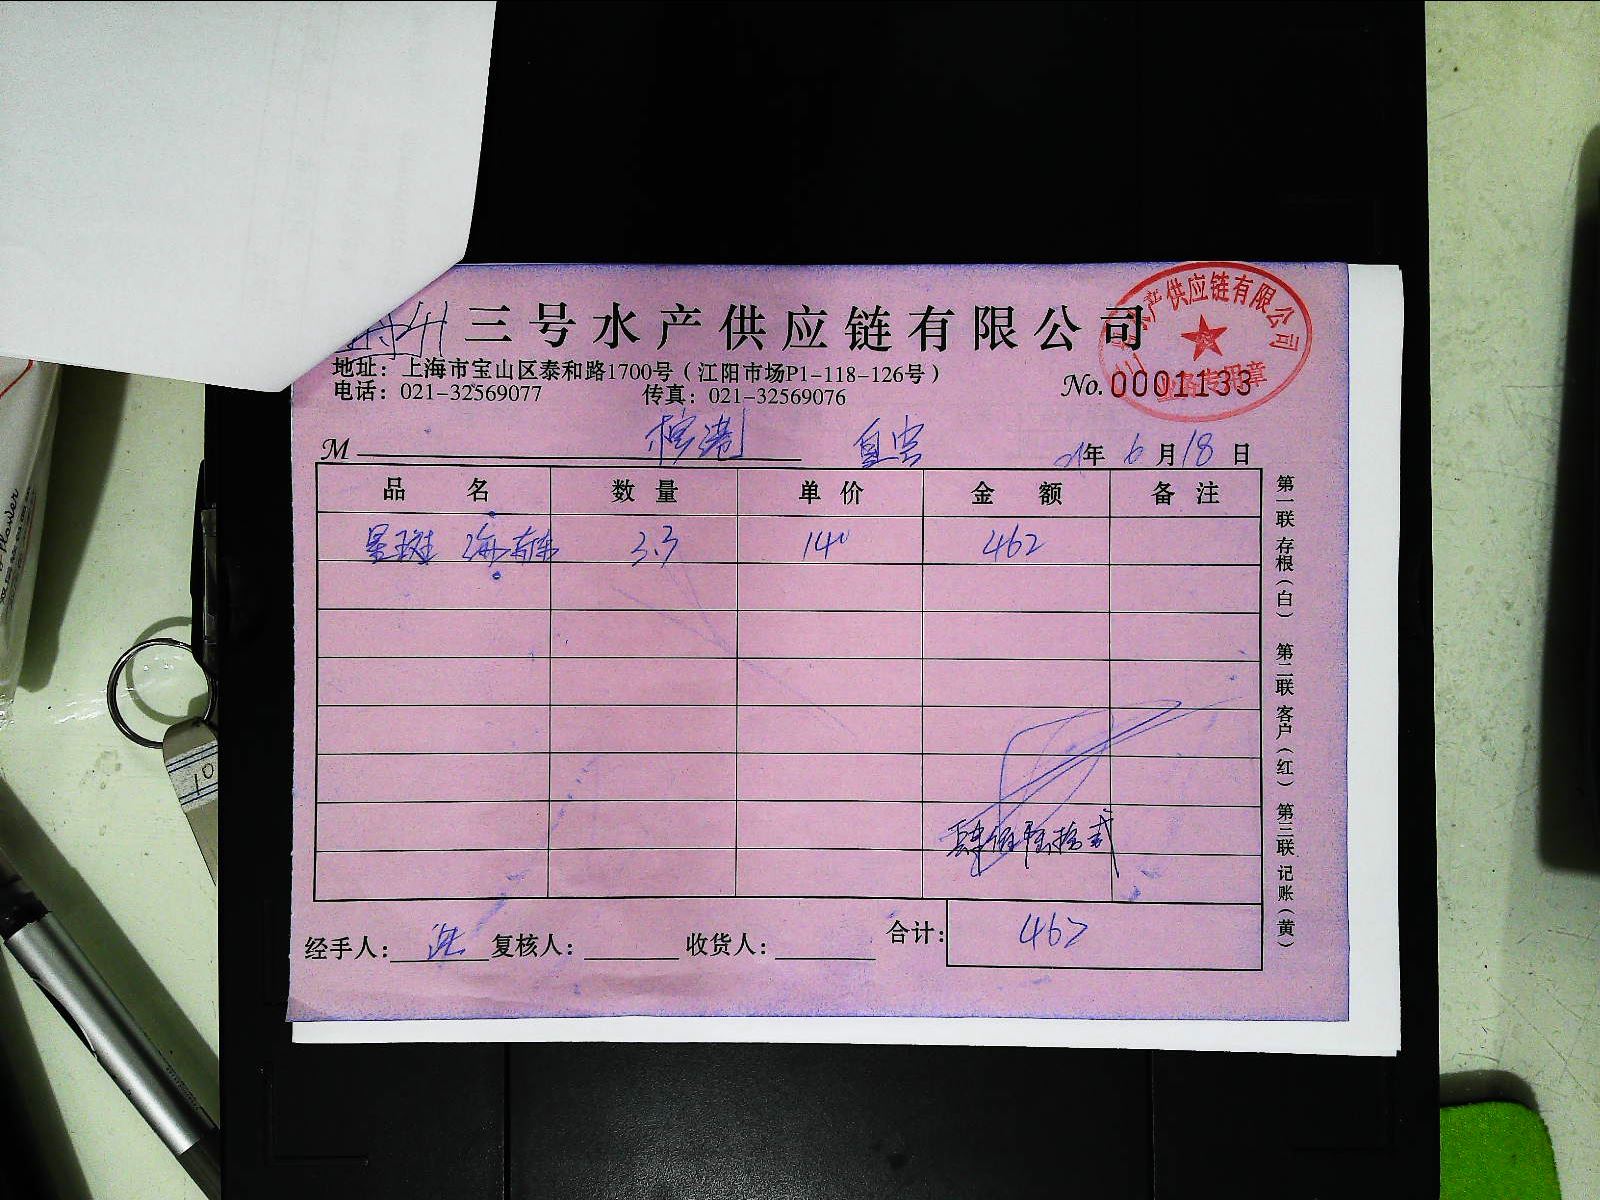 三号水产供应链有限公司
地址：上海市宝山区泰和路1700号（江阳市场P1-118-126号）
电话：021-32569077 传真：021-32569076
No. 0001133
产供应链有限公司
专用章
M 21年 6月18日
品名 数量 单价 金额 备注
星斑 海 3.3 140 462
肆佰陆拾贰
经手人： 复核人： 收货人： 合计： 462
第一联 存根（白） 第二联 客户（红） 第三联 记账（黄）
10